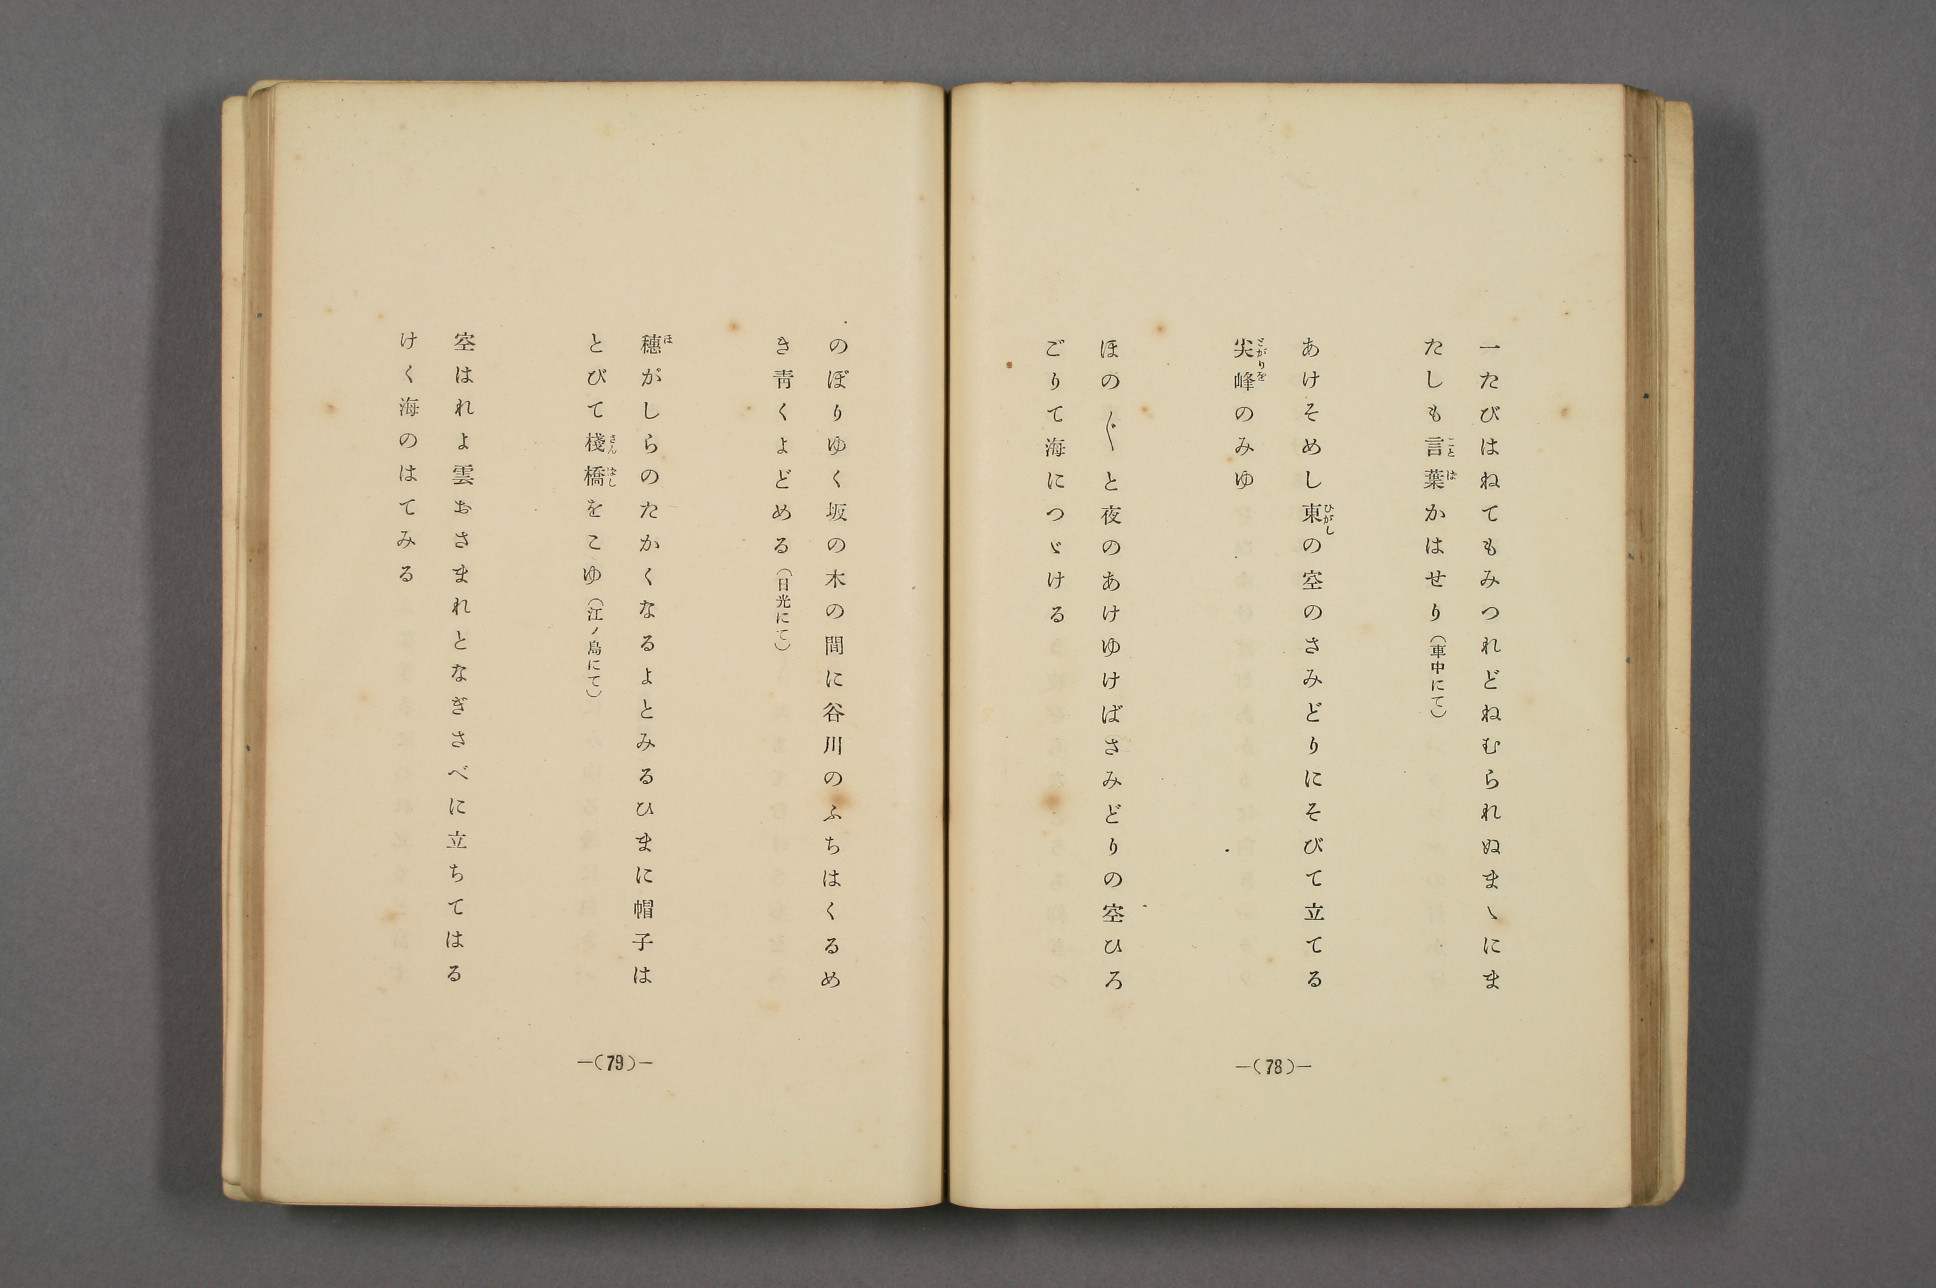 一たびはねてもみつれどねむられぬまゝにま
たしも言葉かはせり（車中にて）
あけそめし東の空のさみどりにそびて立てる
尖峰のみゆ
ほの〴〵と夜のあけゆけばさみどりの空ひろ
ごりて海につゞける
―(78)―
のぼりゆく坂の木の間に谷川のふちはくるめ
き靑くよどめる（日光にて）
穗がしらのたかくなるよとみるひまに帽子は
とびて棧橋をこゆ（江ノ島にて）
空はれよ雲おさまれとなぎさべに立ちてはる
けく海のはてみる
―(79)―